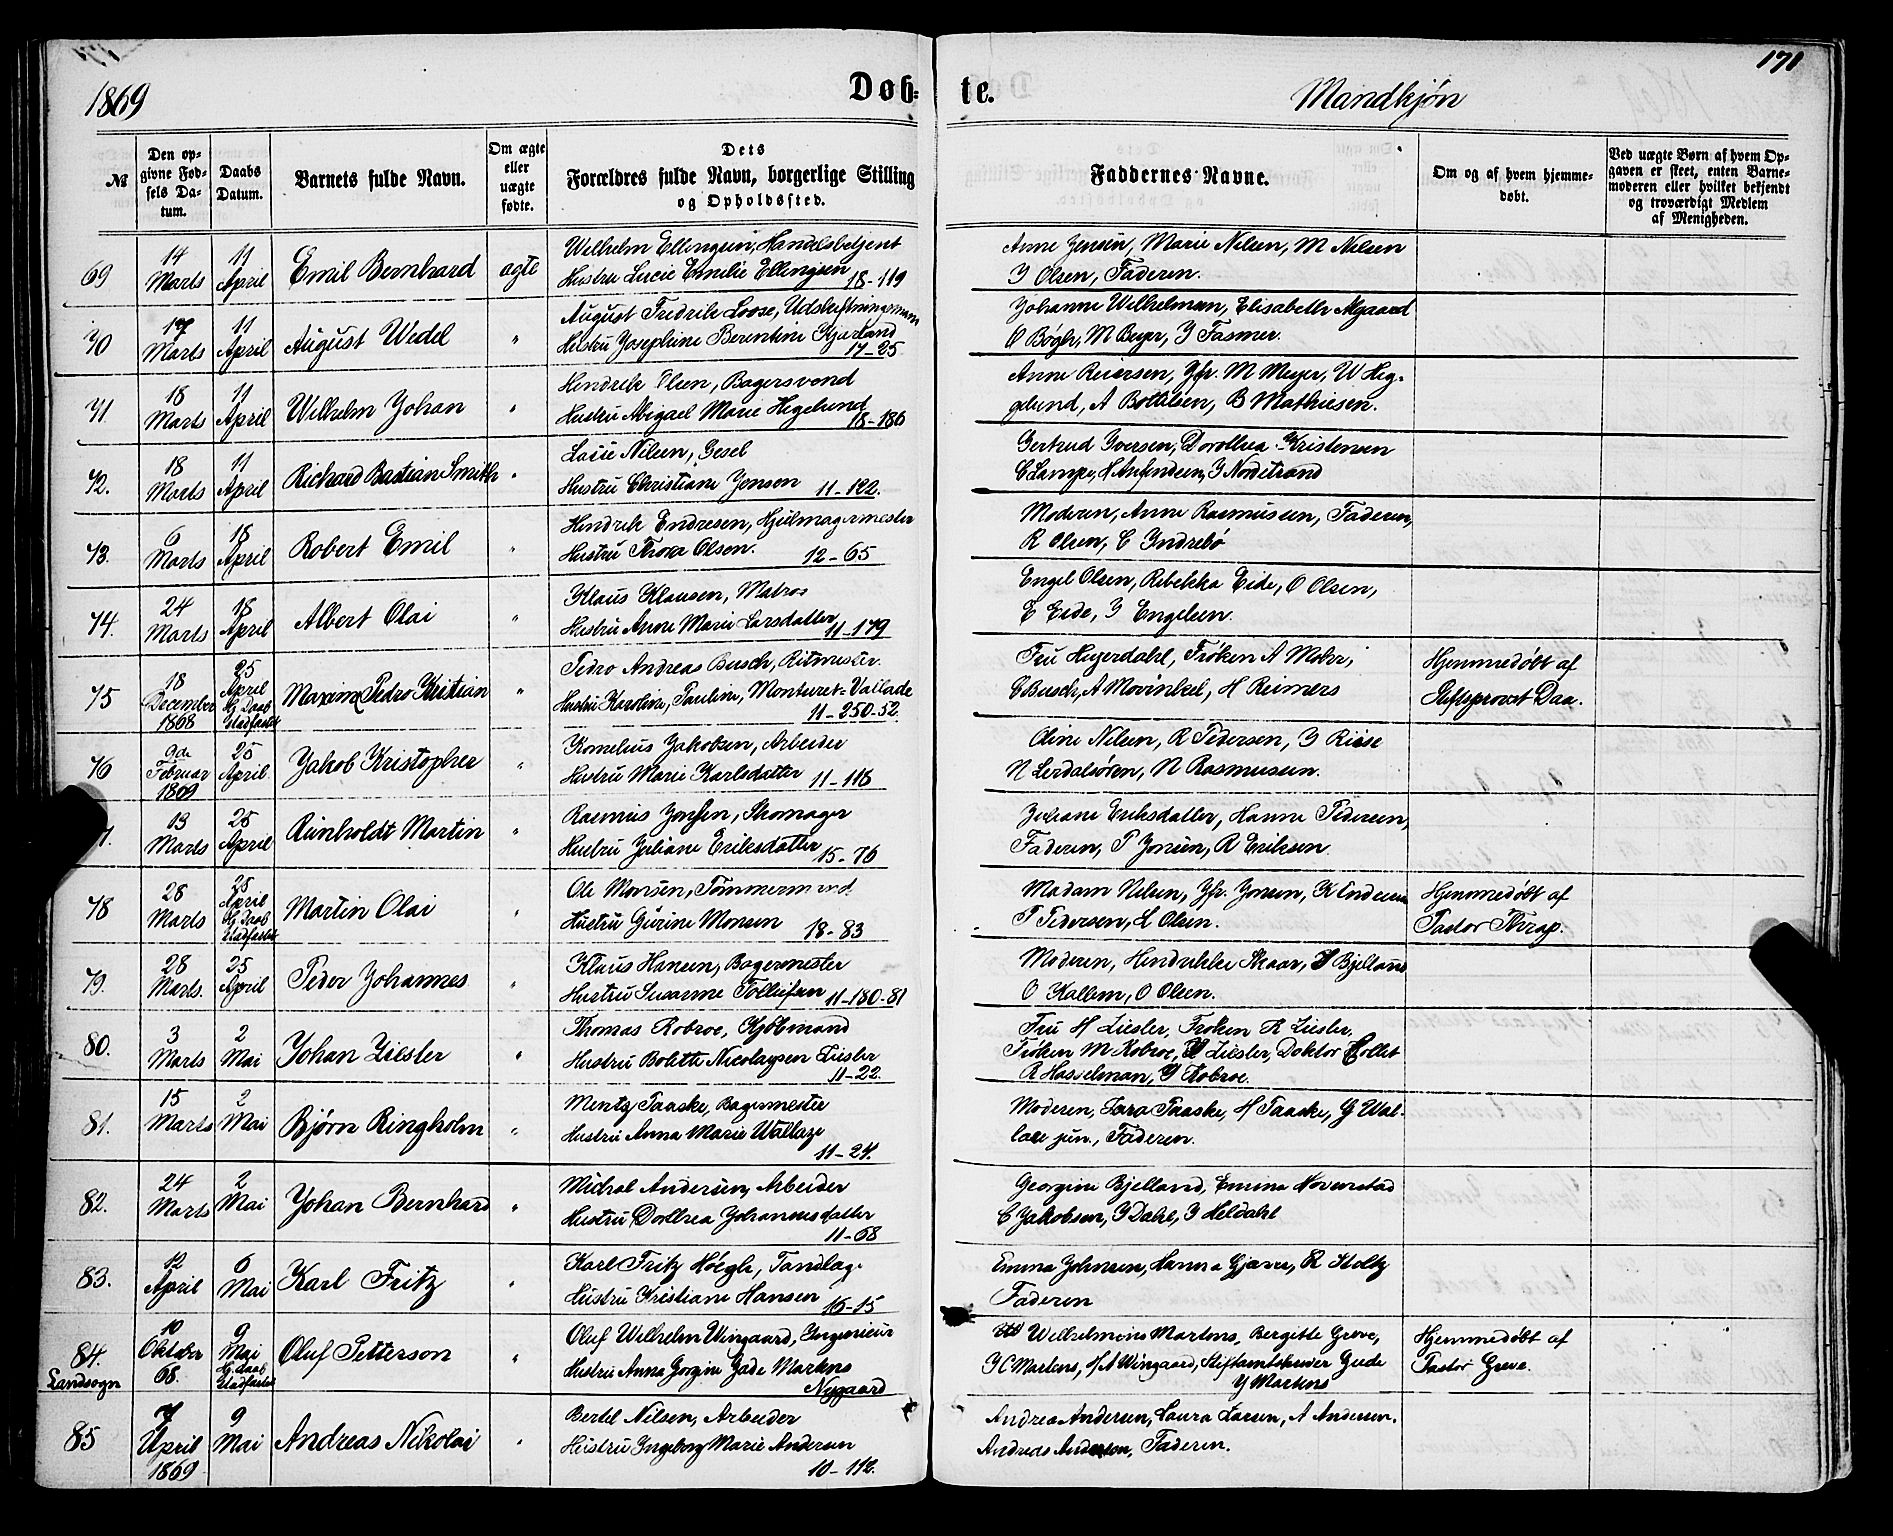 1869
Døb-
te.
Mandkjøn
171
№
Den op-
givne Fød-
sels Da-
tum.
Daabs
Datum.
Barnets fulde Navn.
Om ægte
eller
uægte
fødte.
Dets
Forældres fulde Navn, borgerlige Stilling
og Opholdssted.
Faddernes Navne.
Om og af hvem hjemme-
døbt.
Ved uægte Børn af hvem Op-
gaven er skeet, enten Barne-
moderen eller hvilket bekjendt
og troværdigt Medlem
af Menigheden.
69
14
Marts
11
April
Emil Bernhard
ægte
Wilhelm Ellingsen, Handelsbetjent
Hustru Lucie Emilie Ellingsen
18-119
Anne Jensen, Marie Nilsen, M Nilsen
I Olsen, Faderen.
70
17
Marts
11
April
August Wedel
"
August Fredrik Loose, Udskiftningsmann
Hustru Josephine Berentine Kjærland
17-25
Johanne Wilhelmsen, Elisabeth Algaard
O Bøgh, M Beyer, J Fasmer.
71.
18
Marts
11
April
Wilhelm Johan
"
Hendrik Olsen, Bagersvend
Hustru Abigael Marie Hegelund
18-186
Anne Reiersen, Jfr. M Meyer, W Heg-
gelund, A Bottelsen, B Mathiesen.
72.
18
Marts
11
April
Richard Bastian Smith
"
Lasse Nilsen, Gesel
Hustru Christiane Jensen 11-122.
Gertrud Iversen, Dorothea Kristensen
C Lampe, H Amundsen, I Nordstrand
73.
6
Marts
18
April
Robert Emil
"
Hendrik Endresen, Hjulmagermester
Hustru Thora Olsen. 12-65
Moderen, Anne Rasmussen, Faderen,
R Olsen, C Indrebø
74.
24
Marts
18
April
Albert Olai
"
Klaus Klausen, Matros
Hustru Anne Marie Larsdatter 11-179
Engel Olsen, Rebekka Eide, O Olsen,
E Eide, I Engelsen.
75
18
December
1868
25
April
Hj Daab
Stadfæstet
Maxime Pedro Kristian
"
Pedro Andreas Busch, Ritmester.
Hustru Karoline, Pauline, Monturet-Vallade
11-250-52.
Fru Heyerdahl, Frøken A Mohr,
C Busch, A Movinkel, H Reimers
Hjemmedøbt af
Stiftsprovst Daa.
76
9de
Februar
1869
25
April.
Jakob Kristopher
"
Kornelius Jakobsen, Arbeider
Hustru Marie Karlsdatter 11-116
Oline Nilsen, R Pedersen, I Riise
N Lerdalsøren, N Rasmussen.
13
Marts
25
April
Reinholdt Martin
"
Rasmus Jonsen, Skomager
Hustru Juliane Eriksdatter 15-76
Juliane Eriksdatter, Hanne Pedersen,
Faderen, P Jonsen, R Eriksen.
78
28
Marts
25
April
Hj Daab
Stadfæstet
Martin Olai
"
Ole Monsen, Tømmermand.
Hustru Gurine Monsen 18-83
Madam Nilsen, Jfr. Jonsen, K Andersen
P Pedersen, L Olsen.
Hjemmedøbt af
Pastor Thrap.
79.
28
Marts.
25
April
Peder Johannes
"
Klaus Hansen, Bagermester
Hustru Susanne Tollefsen 11-180-81
Moderen, Hendrikke Skaar, Bjelland
O Kallem, O Olsen.
80.
3
Marts
2
Mai
Johan Ziesler
"
Thomas Robroe, Kjøbmand
Hustru Bolette Nicolaysen Ziesler
11-22.
Fru H Ziesler, Frøken R Ziesler,
Frøken M Kobroe, Ziesler, Doktor Collet
R Hasselman, J Kobroe.
81.
15
Marts
2
Mai
Bjørn Ringholm
"
Mentz Paaske, Bagermester
Hustru Anna Marie Wallaze
11-24.
Moderen, Lara Paaske, H Paaske, G Wal-
lace jun., Faderen.
82.
24
Marts
2
Mai
Johan Bernhard
"
Michal Andersen, Arbeider
Hustru Dorthea Johannesdatter
11-68
Georgine Bjelland, Emma Hovenstad
C Jakobsen, I Dahl, I Heldahl
83.
12
April
6
Mai
Karl Fritz
"
Karl Fritz Høegh, Tandlæge
Hustru Kristiane Hansen 16-15
Emma Johnsen, Hanna Gjære, R Stoltz
Faderen
84.
Landsogn
10
Oktober
68.
9
Mai
Hj Daab
Stadfæstet
Oluf Petterson
"
Oluf Wilhelm Wingaard, Ingeniør
Hustru Anna Gorgine Jade Martens
Nygaard
Wilhelmine Martens, Bergitte Greve,
J C Martens, H A Wingaard, Stiftamtskriver Gude
J Martens
Hjemmedøbt af
Pastor Greve.
85
7
April
1869
9
Mai
Andreas Nikolai
"
Bertel Nilsen, Arbeider
Hustru Ingeborg Marie Andersen
10-112.
Andrea Andersen, Laura Larsen, A Andersen.
Andreas Andersen, Faderen.